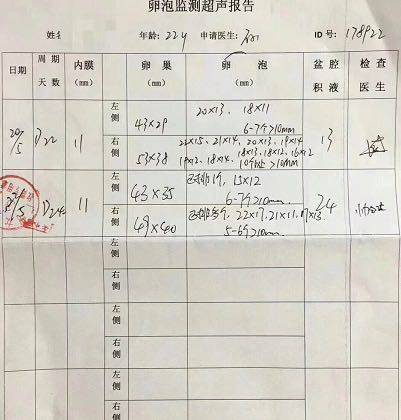 卵泡监测超声报告
年龄: 22y 申请医生: ID号: 178922
日期 周期天数 内膜(mm) 卵巢(mm) 卵泡(mm) 盆腔积液 检查医生
20/5 D22 11 左侧 43×29 20×13、18×11
6-7个>10mm 13
右侧 53×38 22×15、21×14、20×13、19×14
18×13、18×12、16×12
19×12、18×14、10个以上>10mm
22/5 D24 11 左侧 43×35 已排1个, 15×12
6-7个>10mm 24
右侧 49×40 已排多个, 22×17, 21×11, 17×13
5-6个>10mm
左侧
右侧
左侧
右侧
左侧
右侧